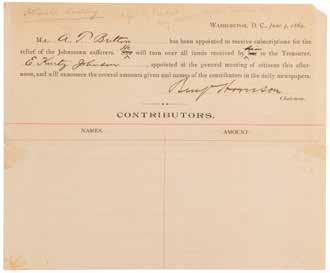 Washington, D. C., June 4, 1889.
Mr. A. T. Britton has been appointed to receive subscriptions for the
relief of the Johnstown sufferers. He will turn over all funds received by him to the Treasurer,
E. Kurtz Johnson, appointed at the general meeting of citizens this after-
noon, and will announce the several amounts given and names of the contributors in the daily newspapers.
Benj Harrison
Chairman.
CONTRIBUTORS.
NAMES. AMOUNT.